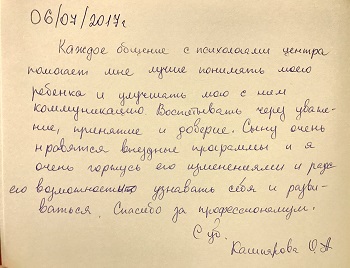 06/07/2017г
Каждое бощение с психологами центра
помогает мне лучше понимать моего
ребенка и улучшать мою с ним
коммуникацию Воспитывать через уваже-
ние, принятие и доверие. Сыну очень
нравятся выездные программы и я
очень горжусь его изменениями и рада
его возможностью узнавать себя и разви-
ваться. Спасибо за профессионализм.
С ув.
Кашпярова О.А